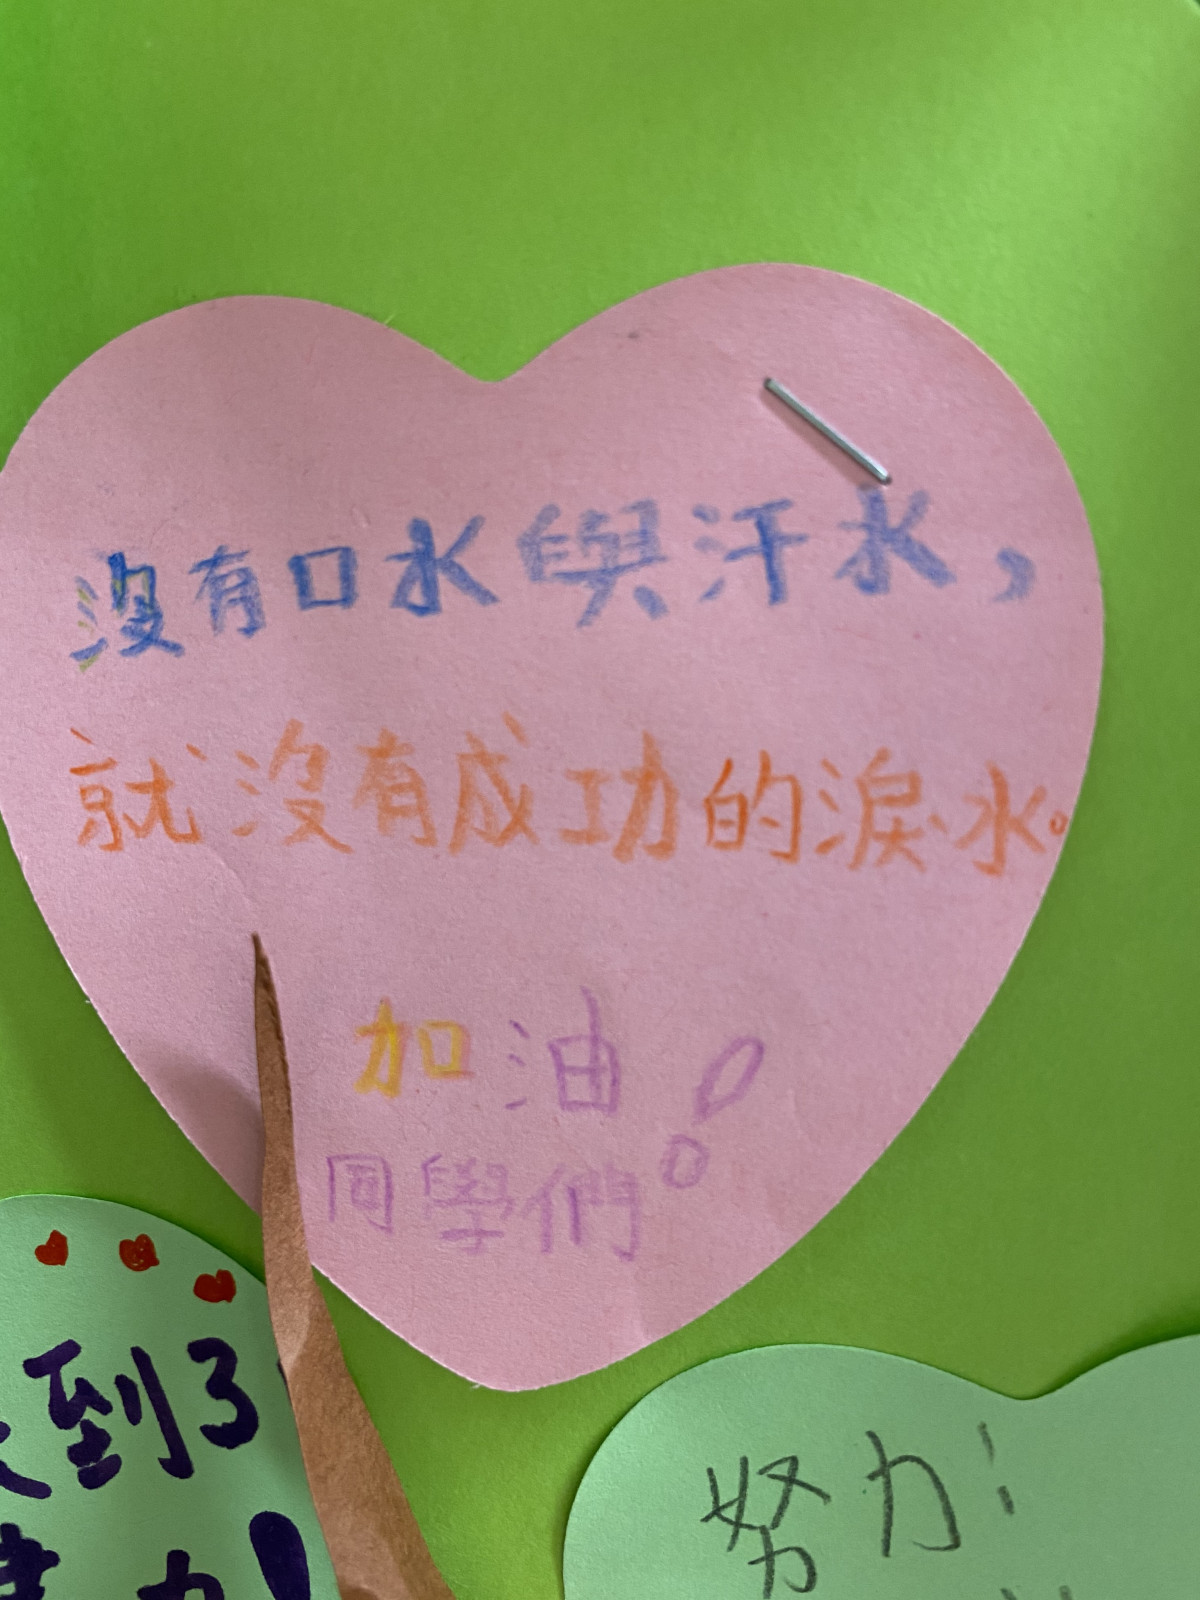 沒有口水與汗水，
就沒有成功的淚水。
加油！
同學們
到了
努力！